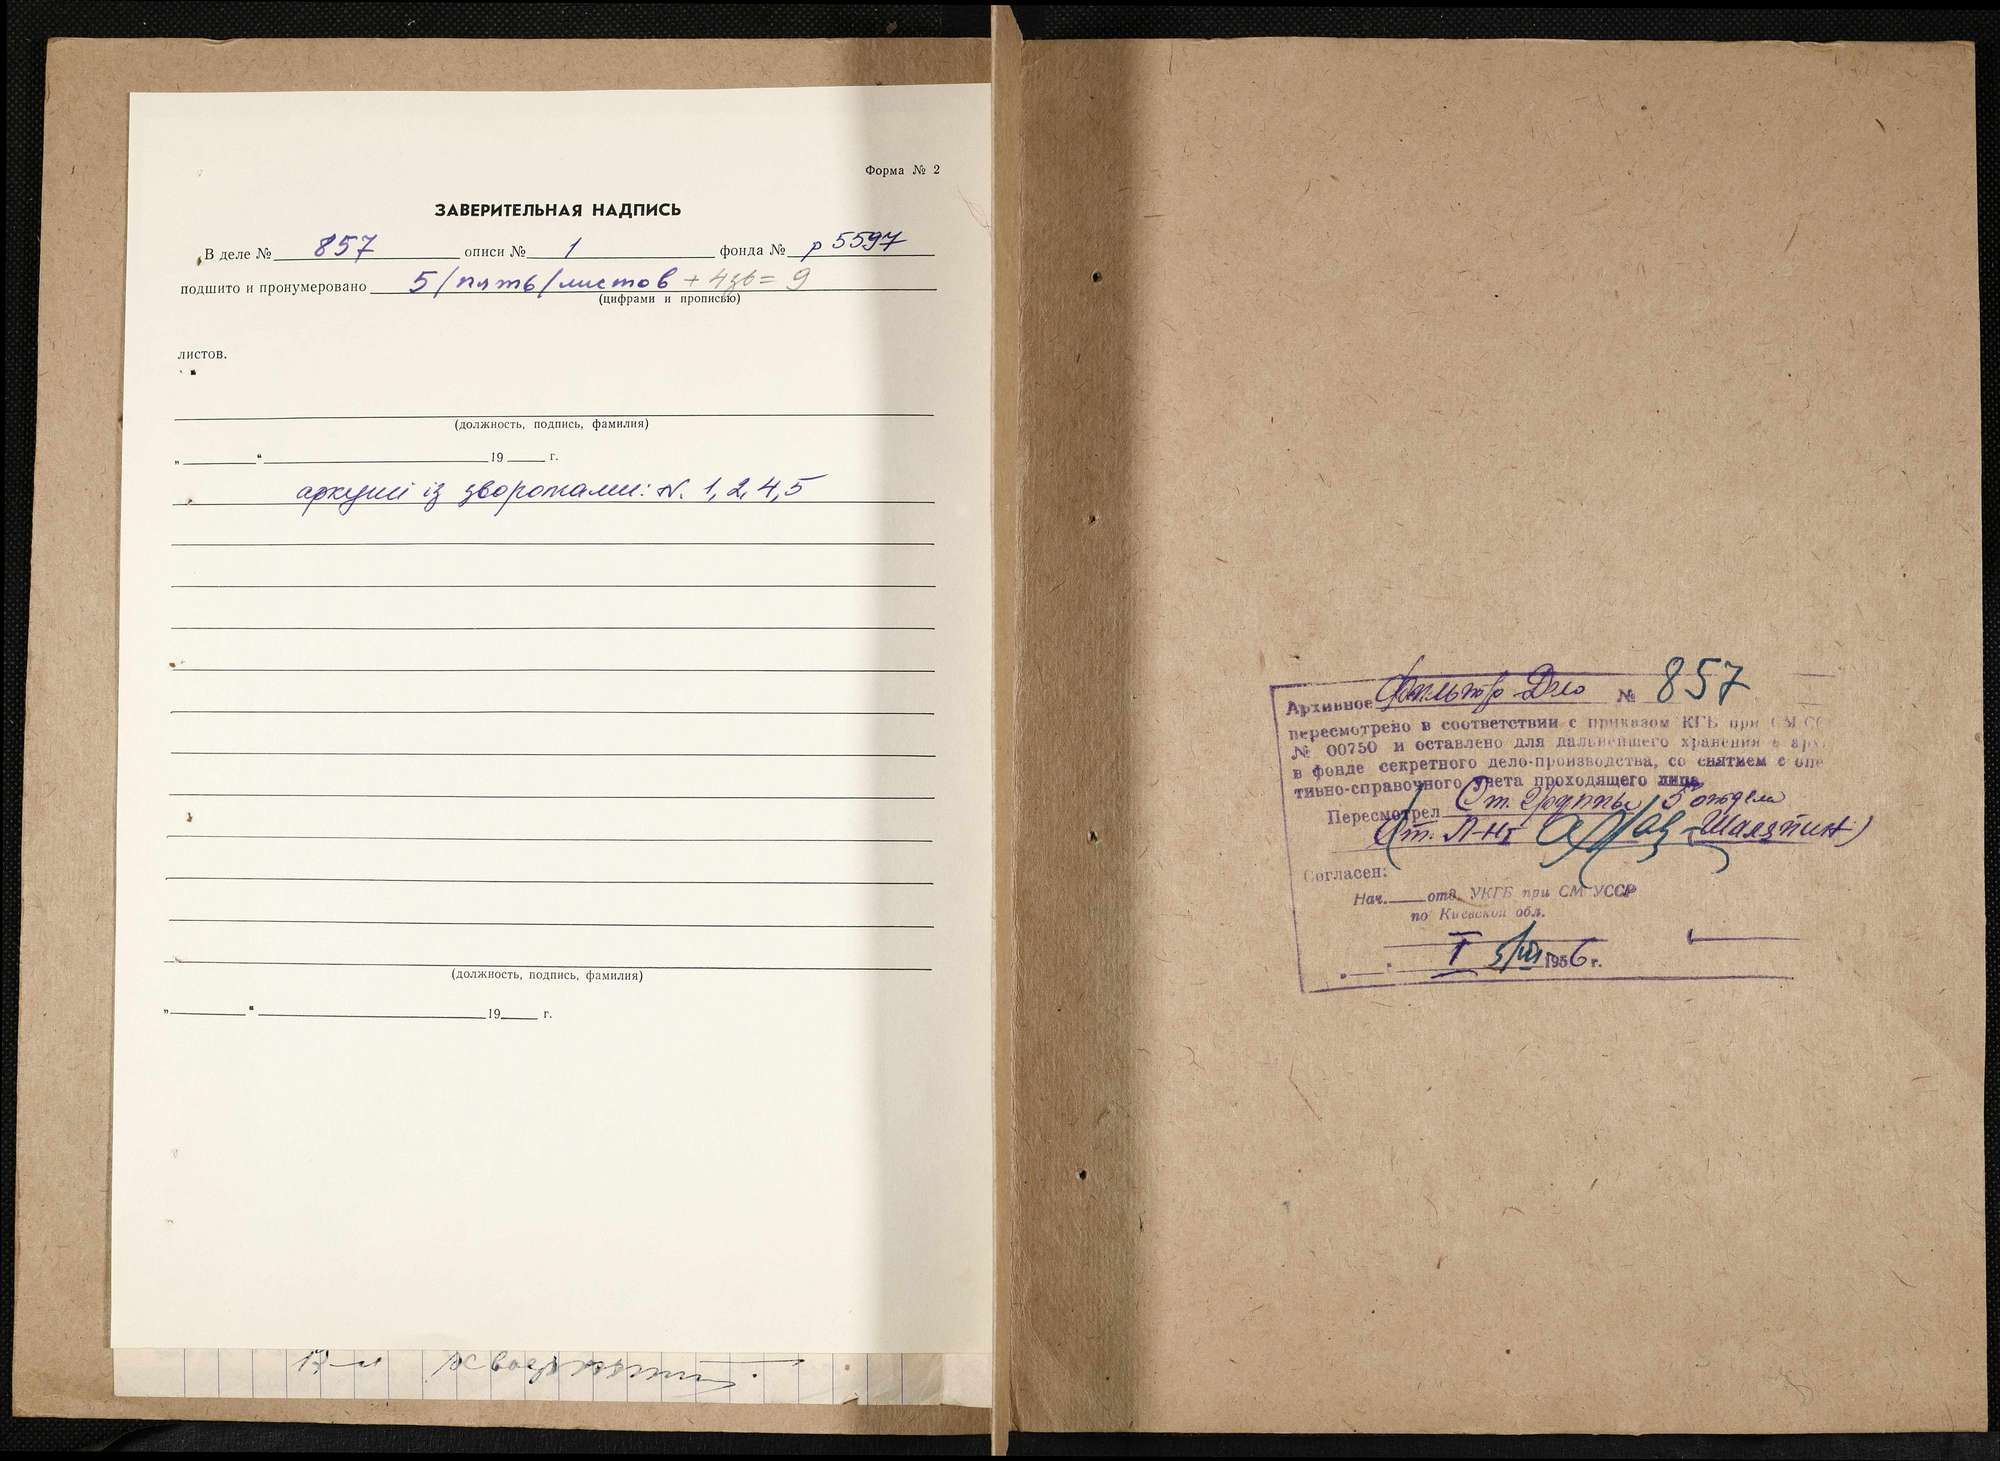 Форма № 2
ЗАВЕРИТЕЛЬНАЯ НАДПИСЬ
В деле № 857 описи № 1 фонда № р 5597
подшито и пронумеровано 5/пять/листов + 4зв = 9
(цифрами и прописью)
листов.
(должность, подпись, фамилия)
„ “ 19 г.
аркуші із зворотами: N. 1, 2, 4, 5
(должность, подпись, фамилия)
„ “ 19 г.
Архивное фильтр Дело № 857
пересмотрено в соответствии с приказом КГБ при СМ СС
№ 00750 и оставлено для дальнейшего хранения в арх
в фонде секретного дело-производства, со снятием с опе
тивно-справочного учета проходящего лица.
Пересмотрел Ст. группы 5 отдела
Ст. Л-нт Шаляпин)
Согласен:
Нач. отд. УКГБ при СМ УССР
по Киевской обл.
1956 г.